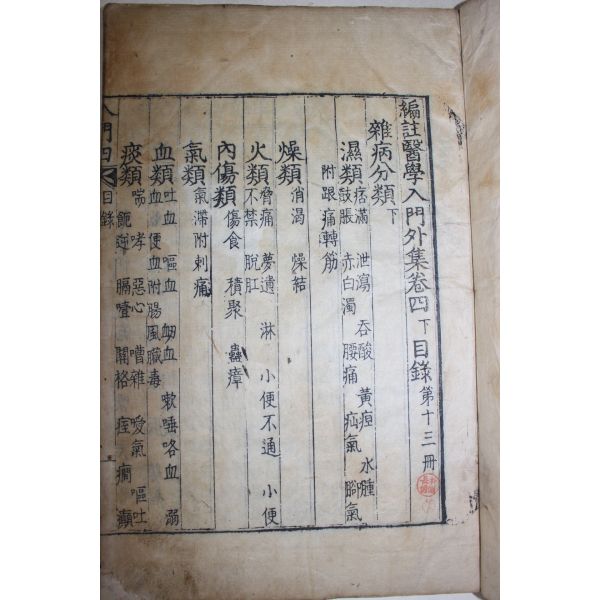 編註醫學入門外集卷四下目錄 第十三冊
雜病分類下
濕類 痞滿 泄瀉 吞酸 黃疸 水腫
鼓脹 赤白濁 腰痛 疝氣 腳氣
附跟痛轉筋
燥類 消渴 燥結
火類 脅痛 夢遺 淋 小便不通 小便
不禁 脫肛
內傷類 傷食 積聚 蟲瘴
氣類 氣滯附刺痛
血類 吐血 嘔血 衂血 嗽唾咯血 溺
血 便血附腸風臟毒
痰類 喘 哮 惡心 嘈雜 噯氣 嘔吐
膈噎 關格 痓 癎 癲
入門四 目錄